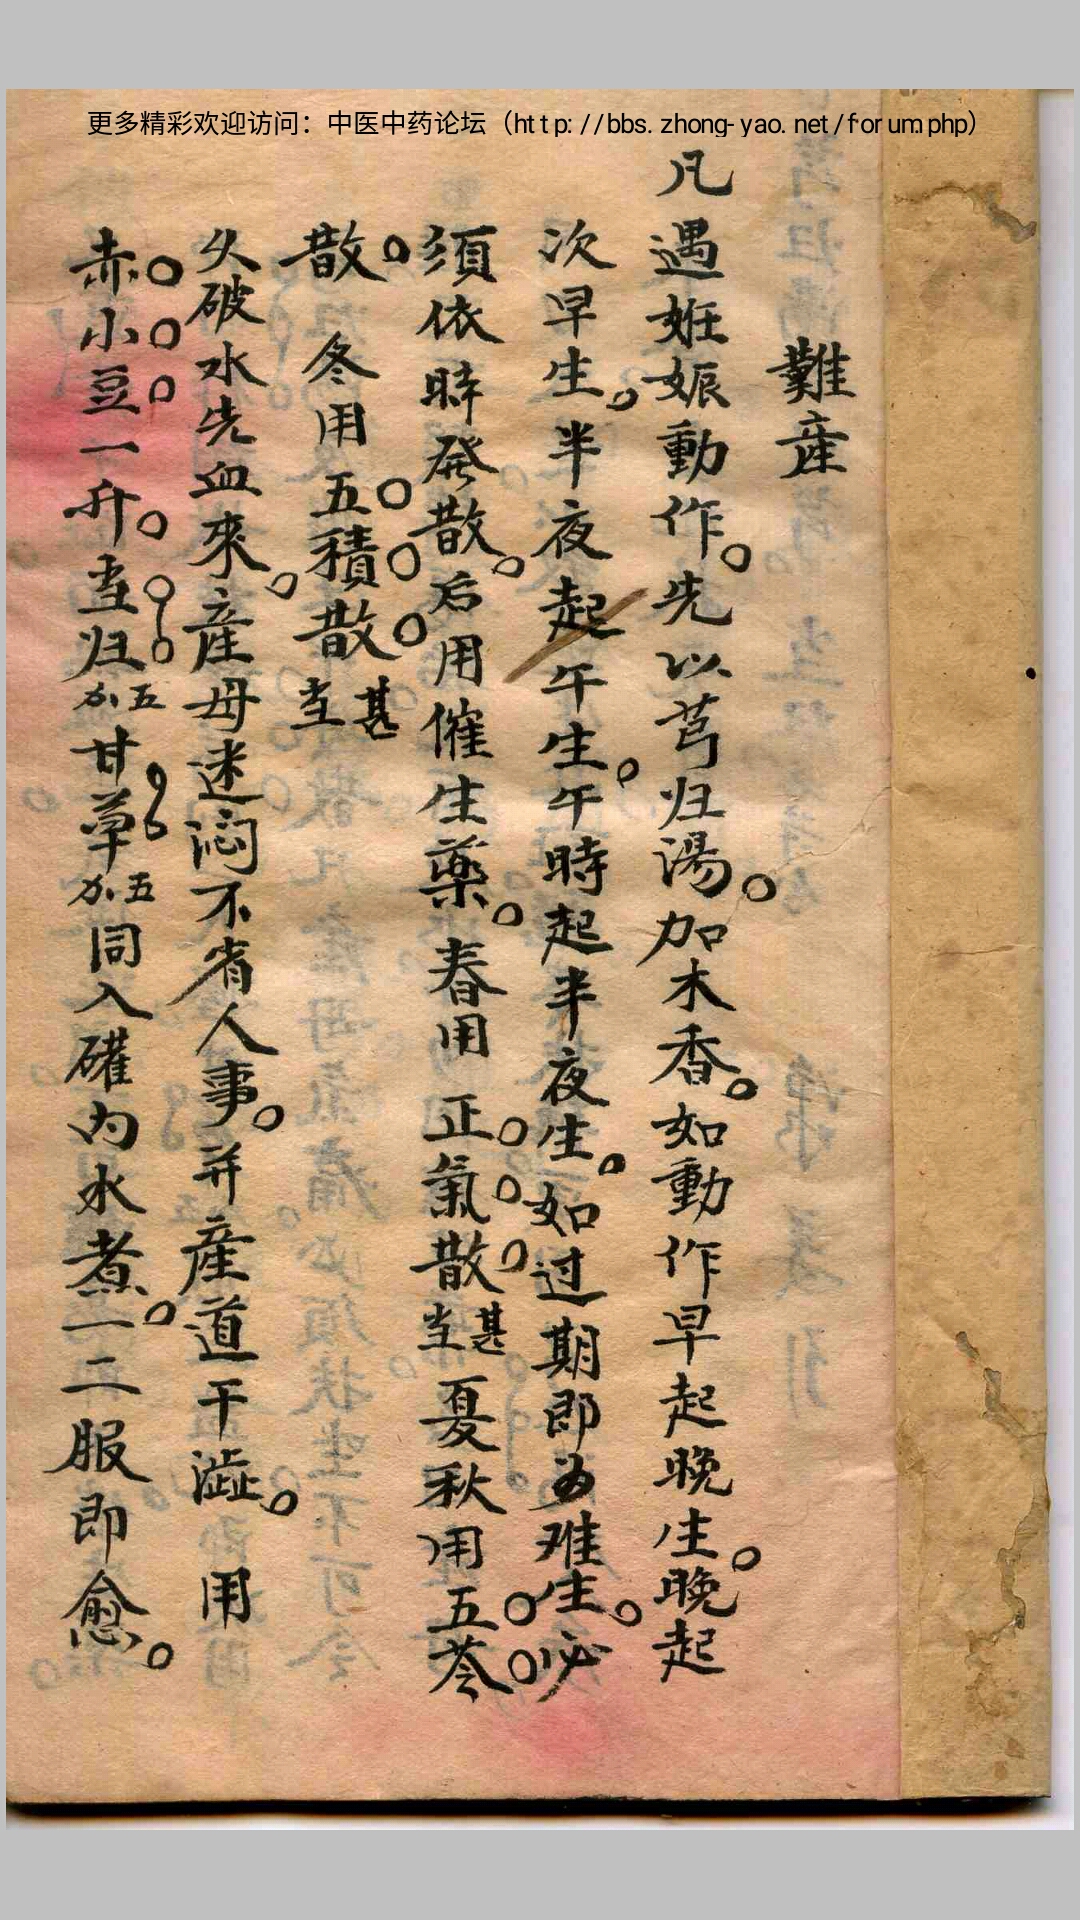 更多精彩欢迎访问：中医中药论坛（http://bbs.zhong-yao.net/forum.php）
難産
凡遇姙娠動作。先以芎归湯。加木香。如動作早起晚生。晚起
次早生。半夜起午生。午時起半夜生。如过期即为难生。必
須依時發散。后用催生薬。春用正氣散甚夏秋用五苓
散。冬用五積散甚
久破水先血來。産母迷闷不省人事。并産道干澁。用
赤小豆一升。归五甘草五同入礶内水煮。一二服即愈。